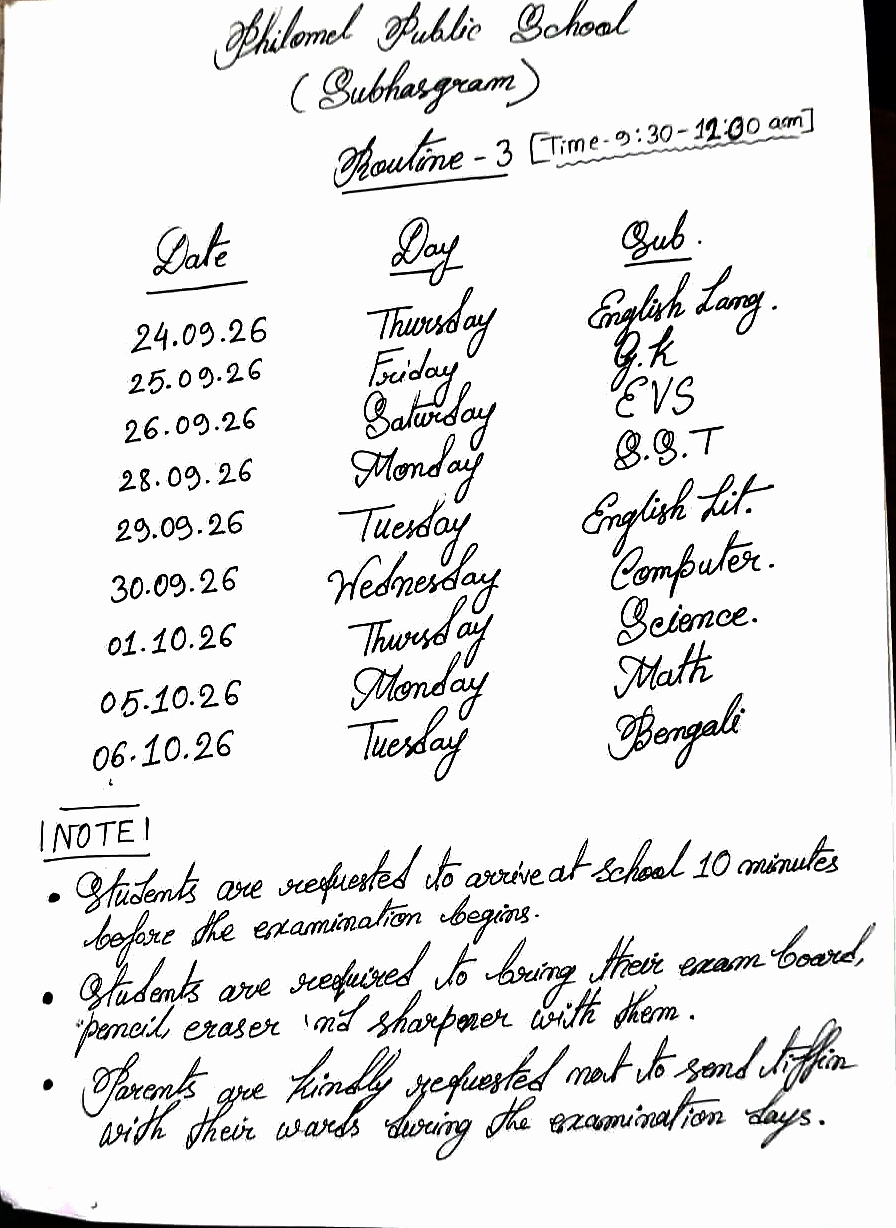 Philomel Public School
(Subhasgram)
Routine - 3 [Time - 9:30 - 12:00 am]
Date Day Sub.
24.09.26 Thursday English Lang.
25.09.26 Friday G.K
26.09.26 Saturday EVS
28.09.26 Monday S.S.T
29.09.26 Tuesday English Lit.
30.09.26 Wednesday Computer.
01.10.26 Thursday Science.
05.10.26 Monday Math
06.10.26 Tuesday Bengali
|NOTE|
• Students are requested to arrive at school 10 minutes
before the examination begins.
• Students are required to bring their exam board,
pencil, eraser 'nd sharpener with them.
• Parents are kindly requested not to send tiffin
with their wards during the examination days.